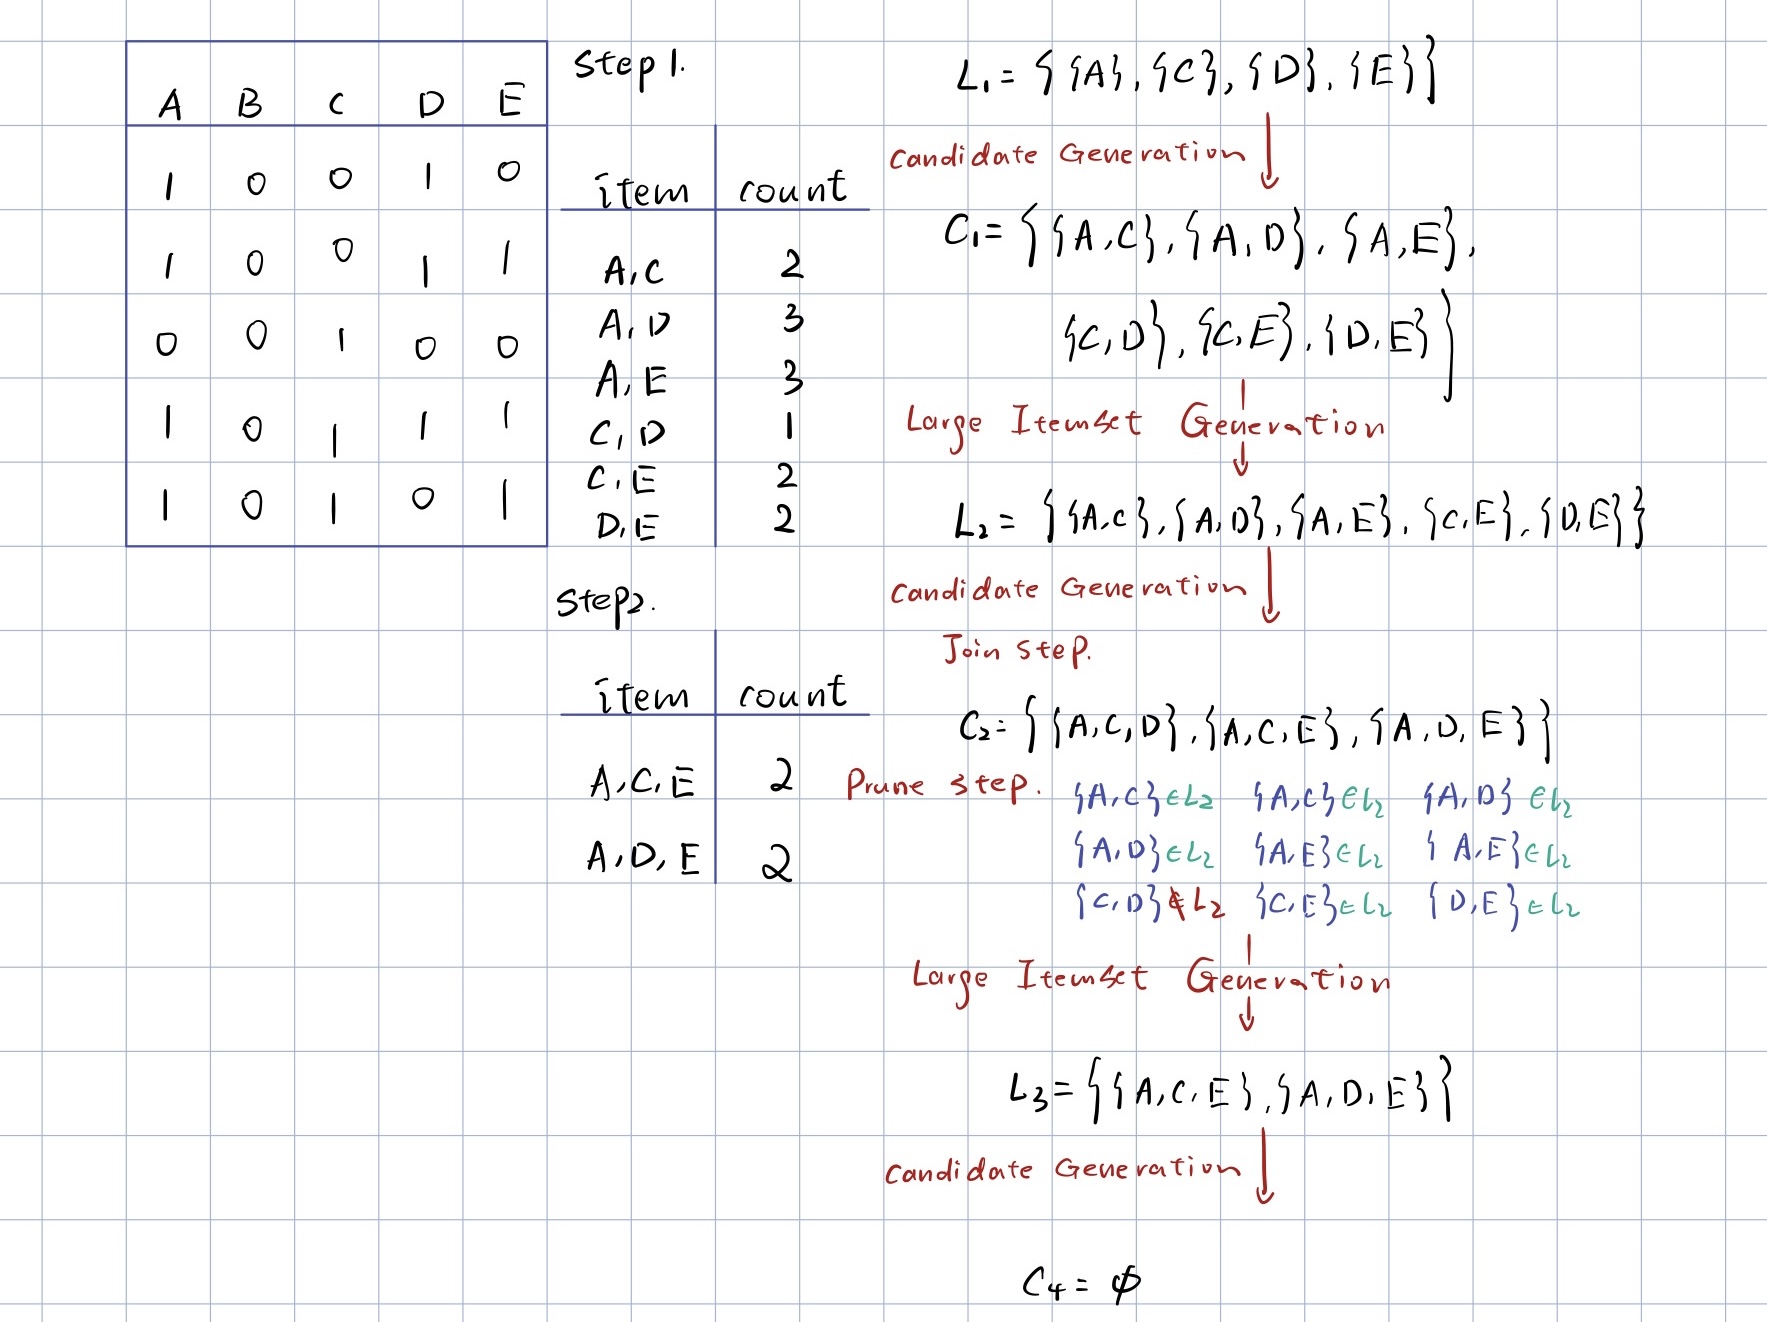 A B C D E
1 0 0 1 0
1 0 0 1 1
0 0 1 0 0
1 0 1 1 1
1 0 1 0 1
Step 1.
item count
A,C 2
A,D 3
A,E 3
C,D 1
C,E 2
D,E 2
Step2.
item count
A,C,E 2
A,D,E 2
L₁ = {{A},{C},{D},{E}}
Candidate Generation
C₁ = {{A,C},{A,D},{A,E},
{C,D},{C,E},{D,E}}
Large Itemset Generation
L₂ = {{A,C},{A,D},{A,E},{C,E},{D,E}}
Candidate Generation
Join step.
C₂ = {{A,C,D},{A,C,E},{A,D,E}}
Prune step. {A,C}∈L₂ {A,C}∈L₂ {A,D}∈L₂
{A,D}∈L₂ {A,E}∈L₂ {A,E}∈L₂
{C,D}∉L₂ {C,E}∈L₂ {D,E}∈L₂
Large Itemset Generation
L₃ = {{A,C,E},{A,D,E}}
Candidate Generation
C₄ = ϕ